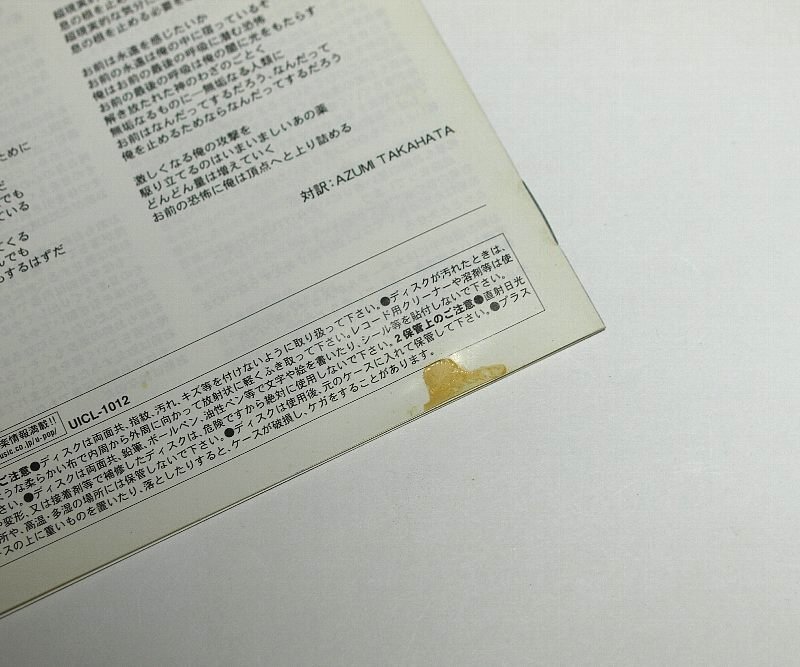 息の根を止める必要を
お前は永遠を感じたいか
お前の永遠は俺の中に宿っているぞ
俺はお前の最後の呼吸に潜む恐怖
お前の最後の呼吸は俺の闇に光をもたらす
解き放たれた神のわざのごとく
無垢なるものに―無垢なる人類に
お前はなんだってするだろう、なんだって
俺を止めるためならなんだってするだろう
激しくなる俺の攻撃を
駆り立てるのはいまいましいあの薬
どんどん量は増えていく
お前の恐怖に俺は頂点へと上り詰める
対訳：AZUMI TAKAHATA
ために
でも
ている
てくる
んでも
らするはずだ
楽情報満載!!
usic.co.jp/u-pop/
UICL-1012
ご注意●ディスクは両面共、指紋、汚れ、キズ等を付けないように取り扱って下さい。●ディスクが汚れたときは、
ような柔らかい布で内周から外周に向かって放射状に軽くふき取って下さい。レコード用クリーナーや溶剤等は使
さい。●ディスクは両面共、鉛筆、ボールペン、油性ペン等で文字や絵を書いたり、シール等を貼付しないで下さい。
や変形、又は接着剤等で補修したディスクは、危険ですから絶対に使用しないで下さい。2保管上のご注意●直射日光
所や、高温・多湿の場所には保管しないで下さい。●ディスクは使用後、元のケースに入れて保管して下さい。●プラス
ースの上に重いものを置いたり、落としたりすると、ケースが破損し、ケガをすることがあります。